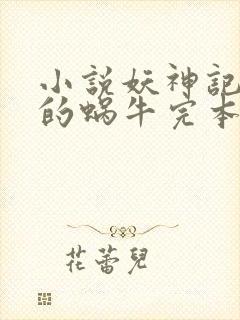 小説妖神記
的蝸牛完本
花蕾兒